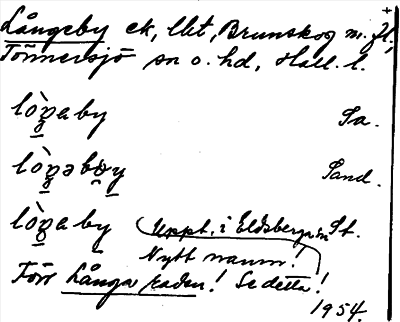 Långeby ek, Ulet, Brunskog m. fl.,
Tönnersjö sn o. hd, Hall. l.
lòŋaby Sa.
lòŋəby Sand.
lòŋaby St.
Uppt. i Eldsberga sn
Nytt namn!
Förr Långa raden! Se detta!
1954.